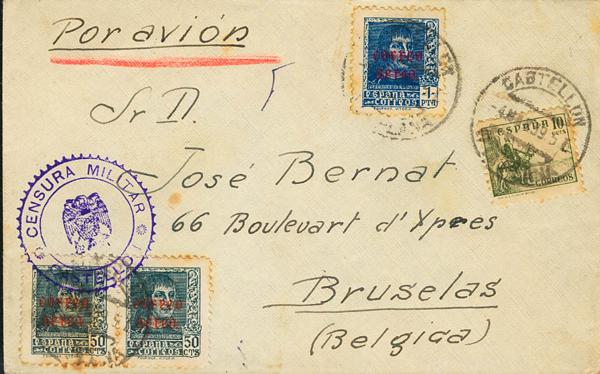 Por avión
CORREO
AEREO
ESPAÑA
CORREOS
1
PTA
CASTELLON
ESPAÑA 10
CORREOS
Sr D.
José Bernat
66 Boulevart d'Xpres
Bruselas
(Belgica)
CENSURA MILITAR
CASTELLON
CORREO
AEREO
ESPAÑA
CORREOS
50
CTS
CORREO
AEREO
ESPAÑA
CORREOS
50
CTS